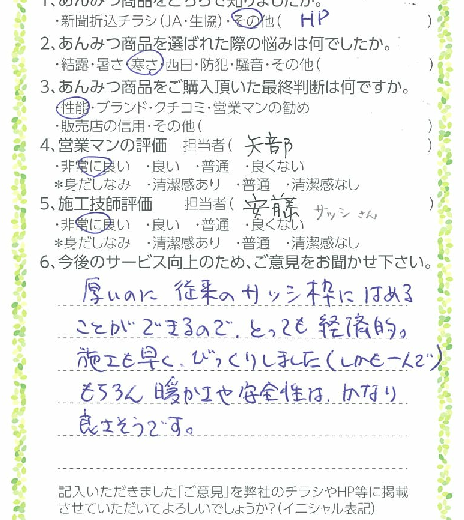 1、あんみつ商品をどちらで知りましたか。
・新聞折込チラシ(JA・生協)・その他( HP )
2、あんみつ商品を選ばれた際の悩みは何でしたか。
・結露・暑さ・寒さ・西日・防犯・騒音・その他( )
3、あんみつ商品をご購入頂いた最終判断は何ですか。
・性能・ブランド・クチコミ・営業マンの勧め
・販売店の信用・その他( )
4、営業マンの評価 担当者( 矢部 )
・非常に良い ・良い ・普通 ・良くない
＊身だしなみ ・清潔感あり ・普通 ・清潔感なし
5、施工技師評価 担当者( 安藤 サッシさん )
・非常に良い ・良い ・普通 ・良くない
＊身だしなみ ・清潔感あり ・普通 ・清潔感なし
6、今後のサービス向上のため、ご意見をお聞かせ下さい。
厚いのに 従来のサッシ枠にはめる
ことができるので、とっても経済的。
施工も早く、びっくりしました(しかも一人で)
もちろん 暖かさや安全性は、かなり
良さそうです。
記入いただきました「ご意見」を弊社のチラシやHP等に掲載
させていただいてよろしいでしょうか?(イニシャル表記)